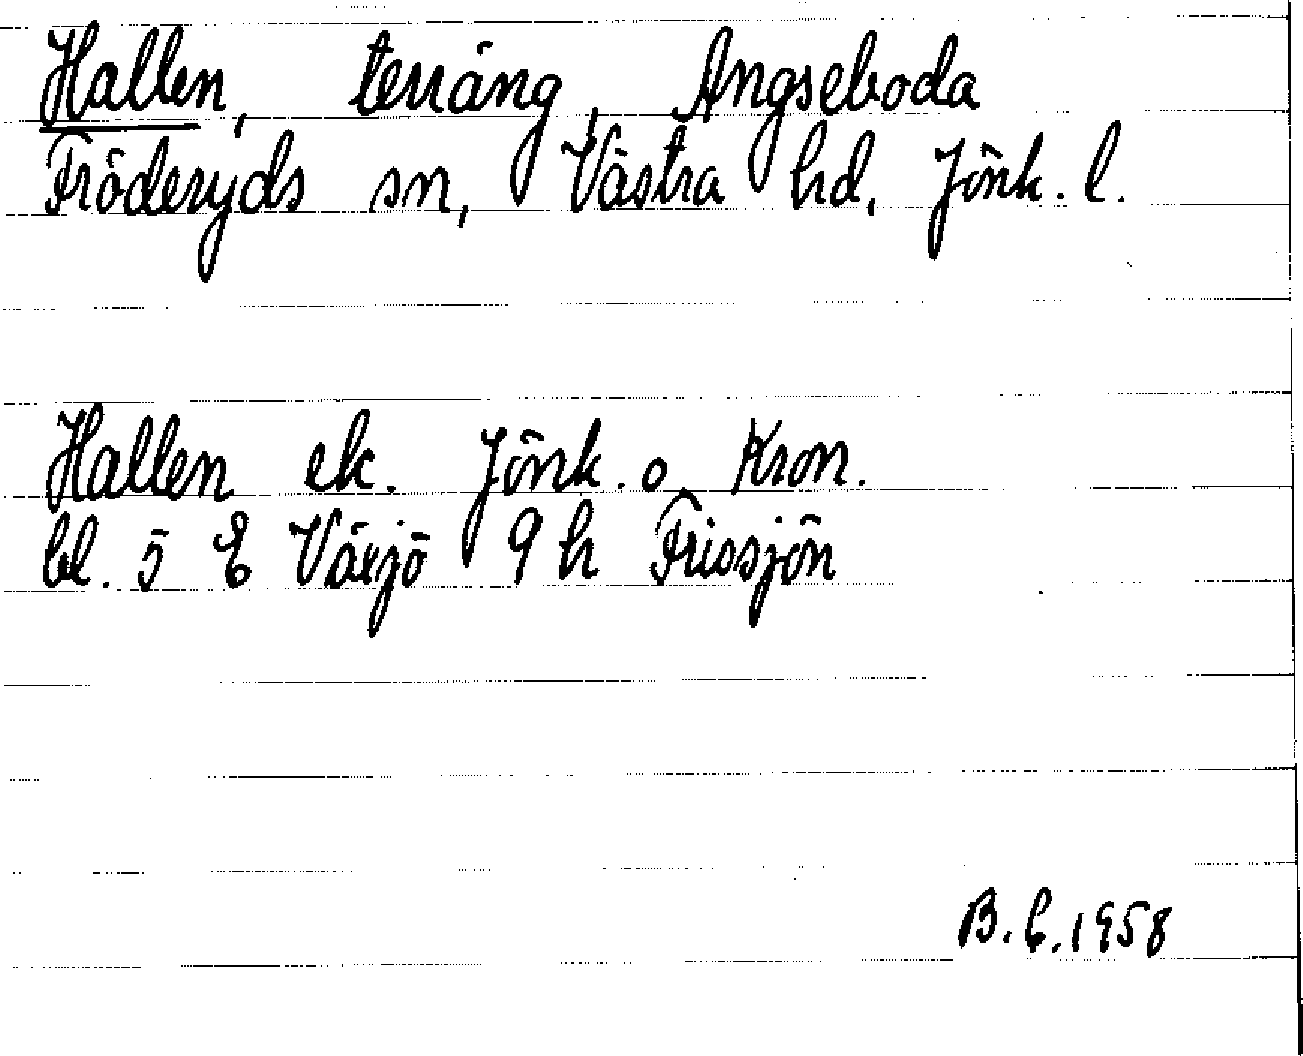 Hallen, terräng, Angseboda
Fröderyds sn, Västra hd, Jönk. l.
Hallen ek. Jönk. o Kron.
bl. 5 E Växjö 9 h Frissjön
B. E. 1958